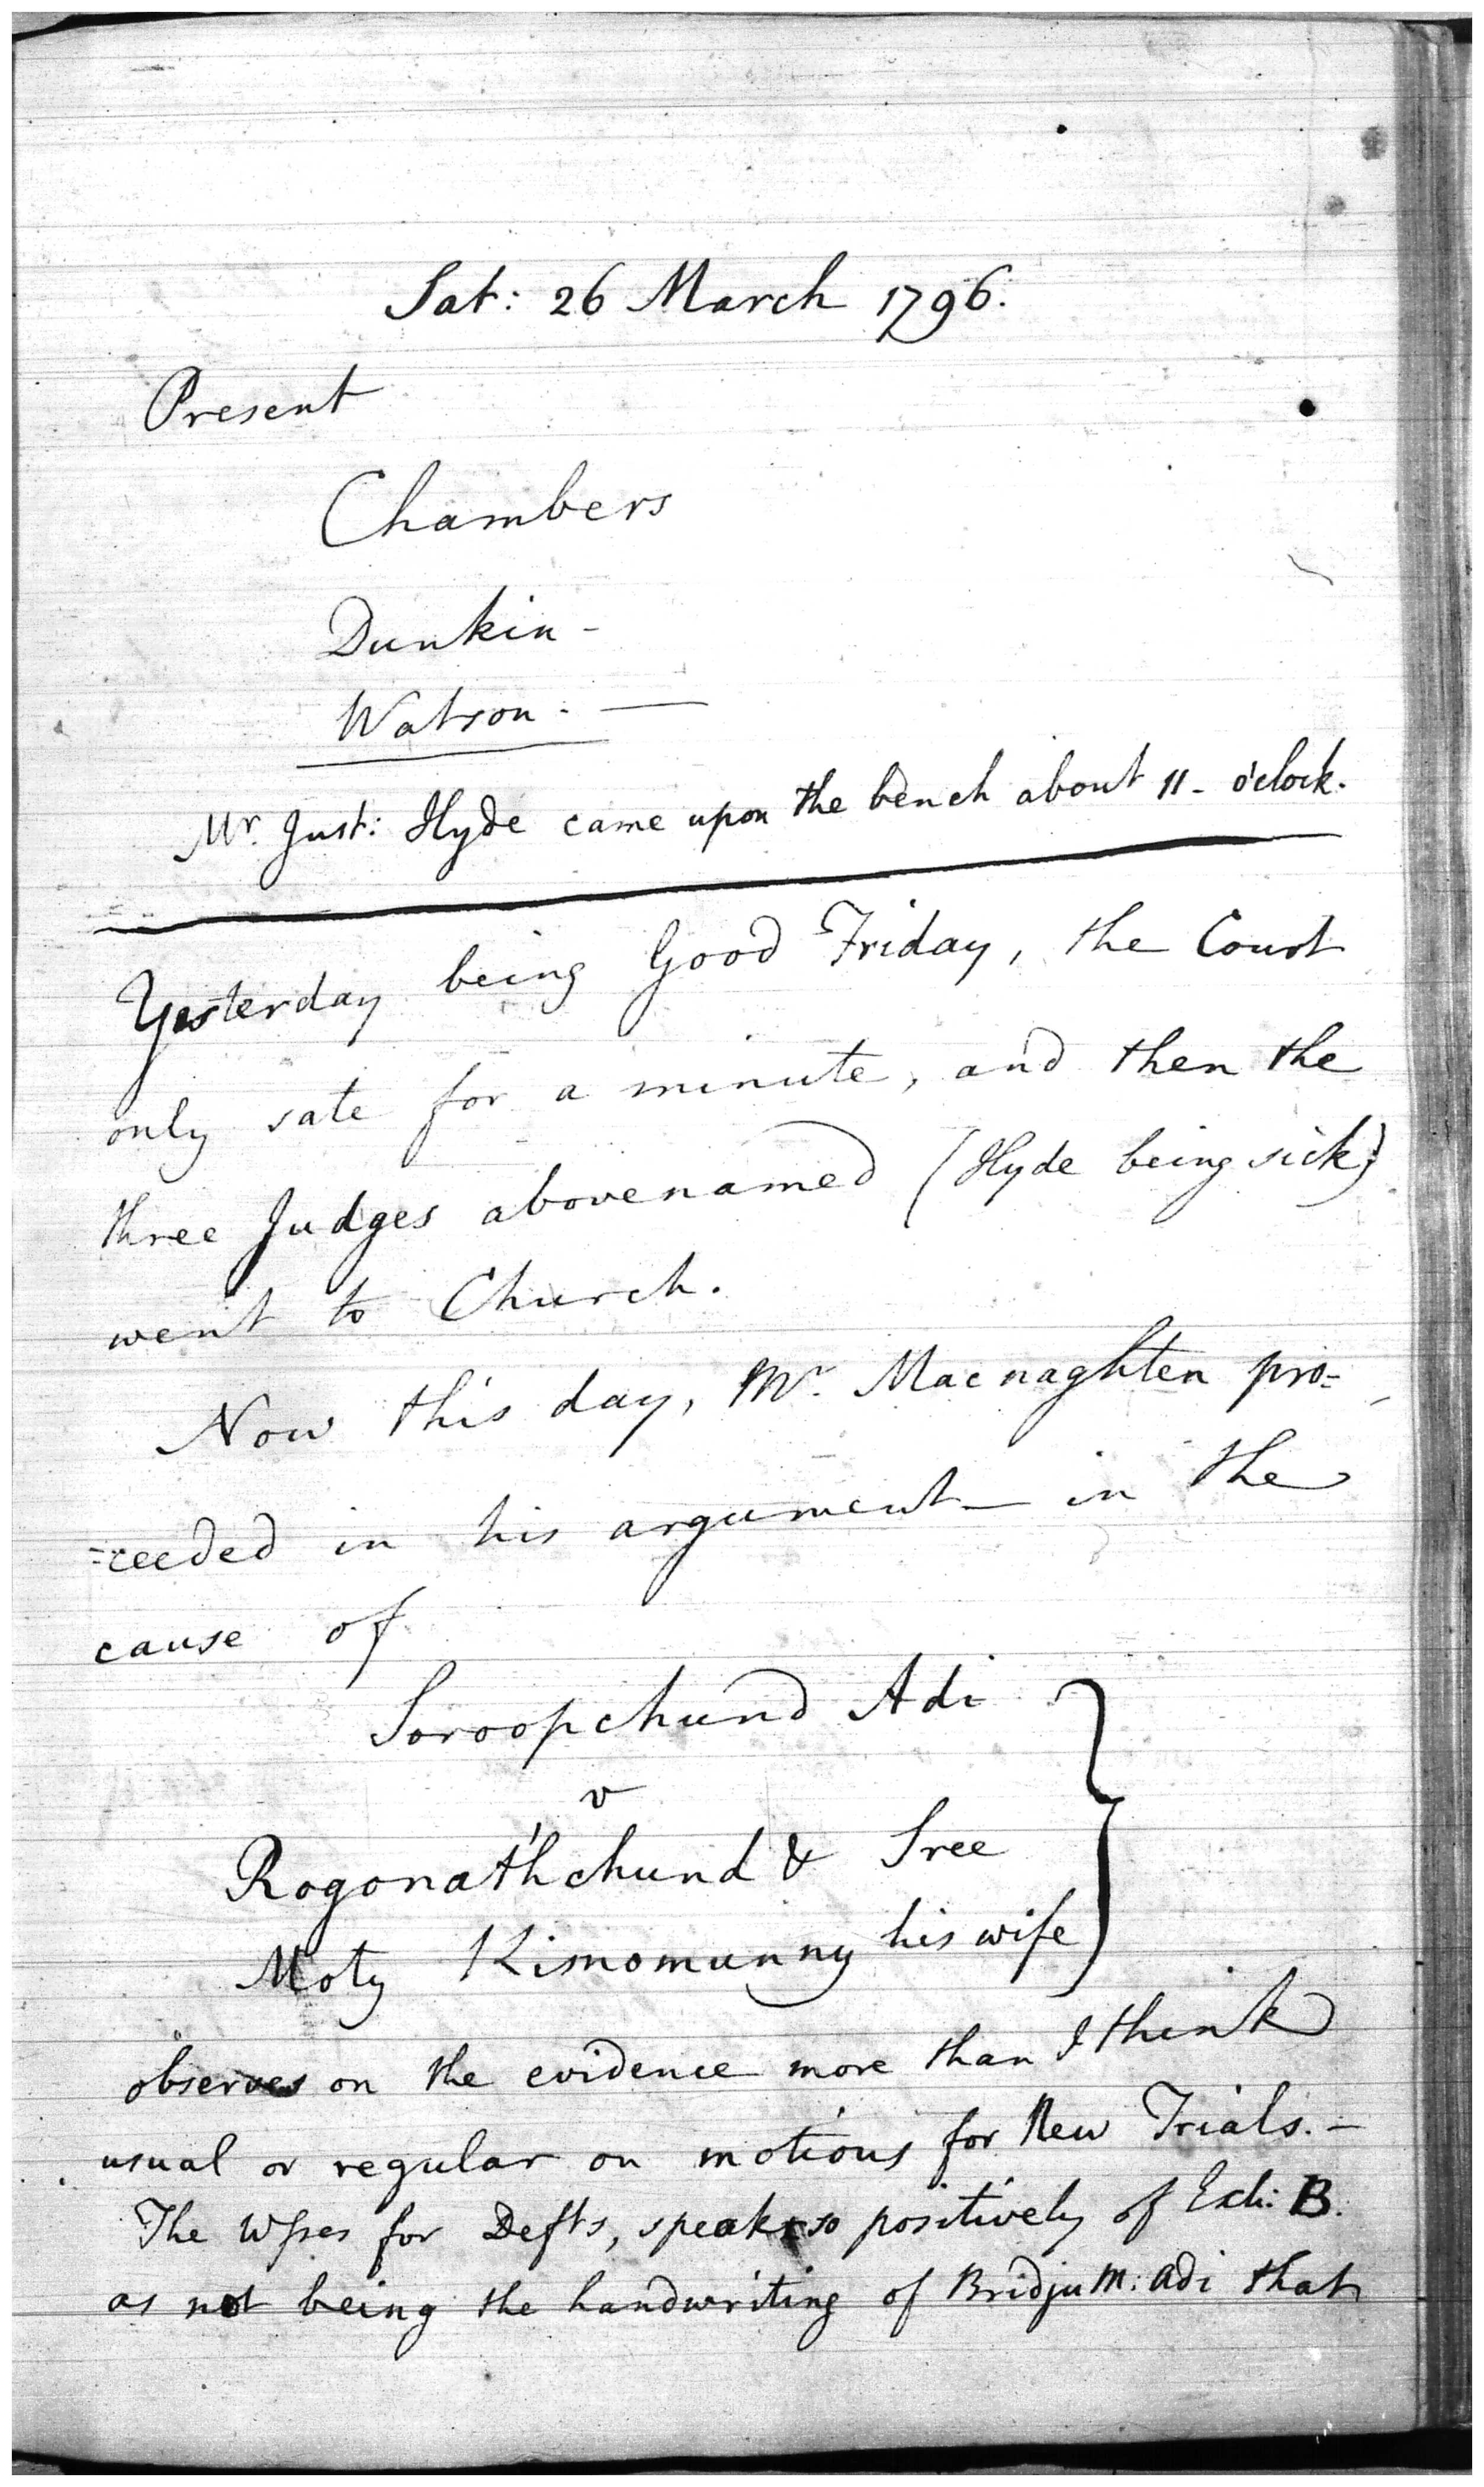 Sat: 26 March 1796.
Present
Chambers
Dunkin -
Watson. —
Mr. Just: Hyde came upon the bench about 11 - o'clock.
Yesterday being Good Friday, the Court
only sate for a minute, and then the
three Judges abovenamed (Hyde being sick)
went to Church.
Now this day, Mr. Macnaghten pro=
=ceeded in his argument — in the
cause of
Soroopchund Adi
v
Rogonathchund & Sree
Moty Kimomunny his wife
observes on the evidence more than I think
usual or regular on motions for New Trials. -
The Wsses for Defts, speak so positively of Exh: B.
as not being the handwriting of Bridju M: Adi that